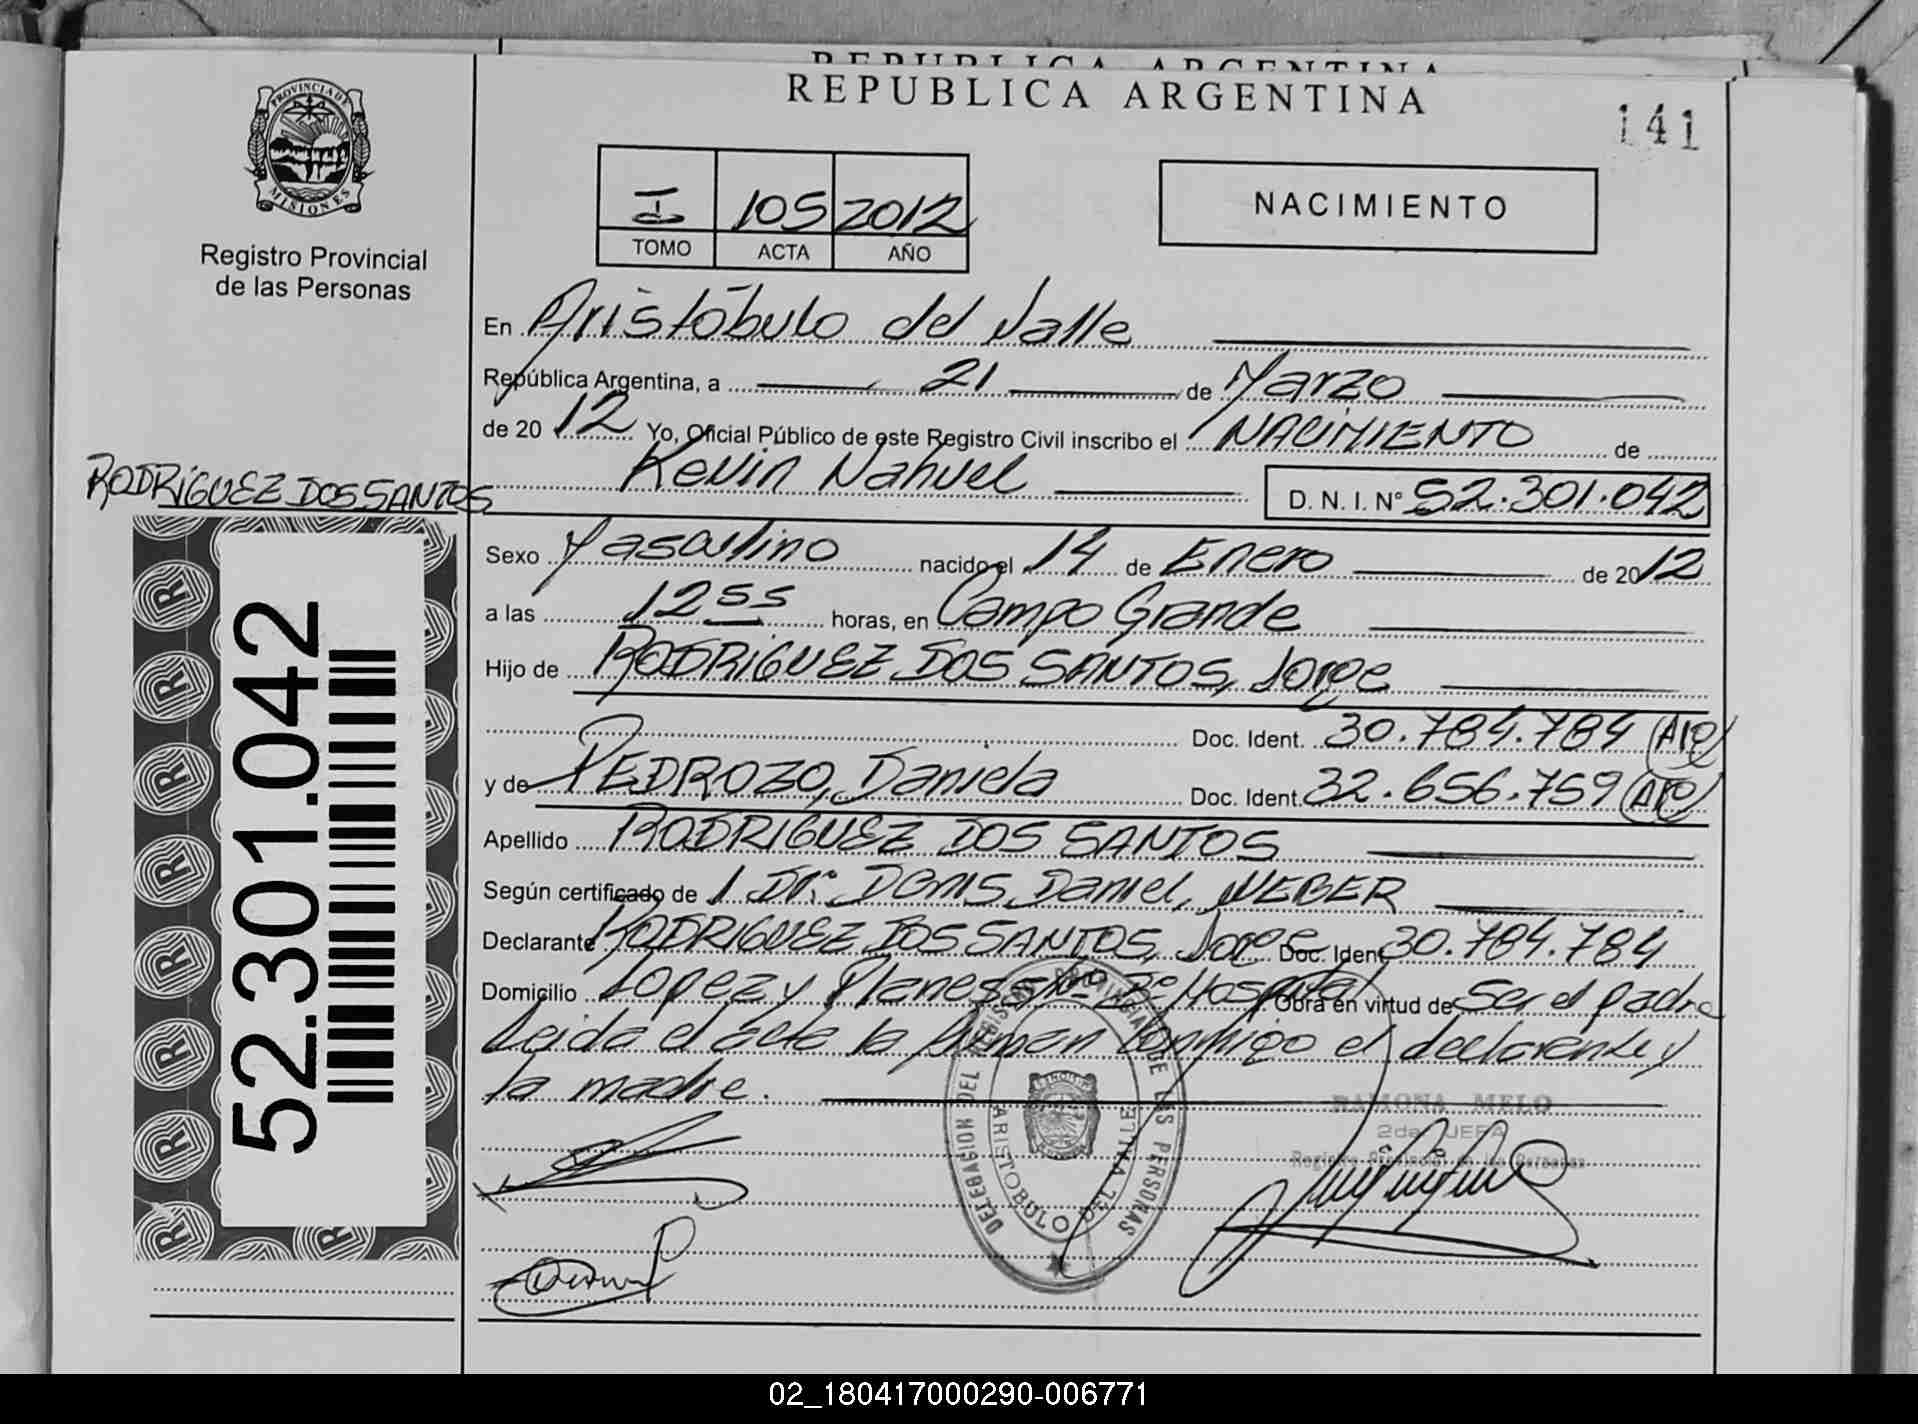 REPUBLICA ARGENTINA
REPUBLICA ARGENTINA
141
PROVINCIA DE
MISIONES
Registro Provincial
de las Personas
I 105 2012
TOMO ACTA AÑO
NACIMIENTO
En Aristóbulo del Valle
República Argentina, a 21 de Marzo
de 2012 Yo, Oficial Público de este Registro Civil inscribo el NACIMIENTO de
Kevin Nahuel D. N. I. N° 52.301.042
RODRIGUEZ DOS SANTOS
52.301.042
Sexo Masculino nacido el 14 de Enero de 2012
a las 12 55 horas, en Campo Grande
Hijo de RODRIGUEZ DOS SANTOS, Jorge
Doc. Ident. 30.784.784
y de PEDROZO, Daniela Doc. Ident. 32.656.759
Apellido RODRIGUEZ DOS SANTOS
Según certificado de Dr. Denis, Daniel, WEBER
Declarante RODRIGUEZ DOS SANTOS, Jorge Doc. Ident 30.784.784
Domicilio Lopez y Planes Hospital Obra en virtud de Ser el padre
Leida el acta la firman conmigo el declarante y
la madre.
DELEGACION DEL REGISTRO PROVINCIAL DE LAS PERSONAS
ARISTOBULO DEL VALLE
RAMONA MELO
2da JEFA
Registro Provincial de las Personas
02_180417000290-006771